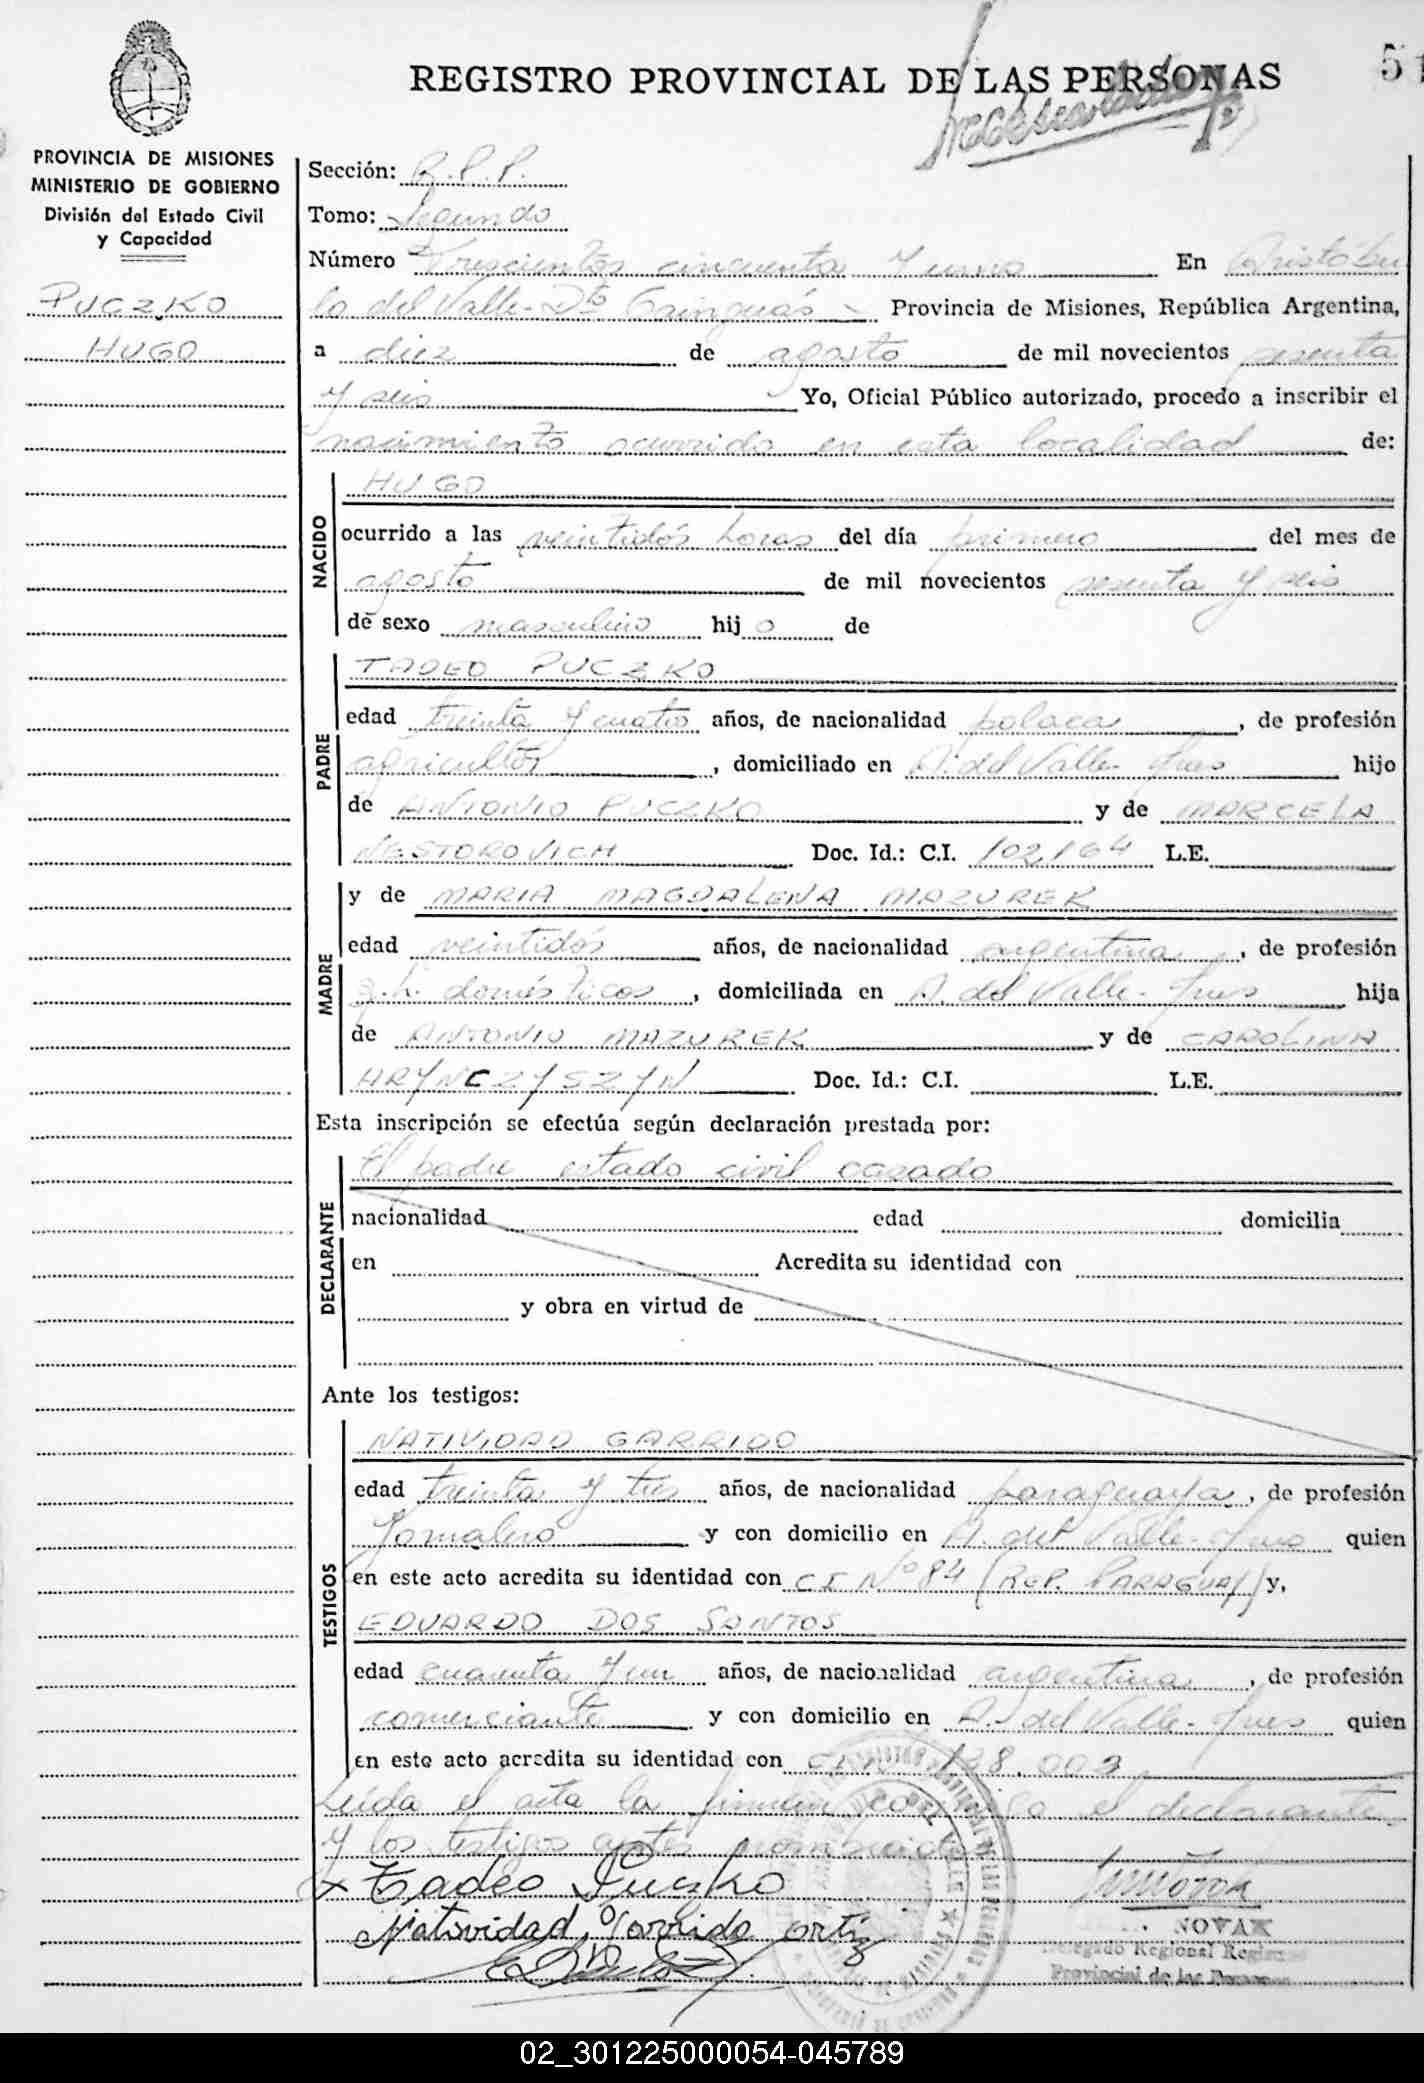 REGISTRO PROVINCIAL DE LAS PERSONAS
51
PROVINCIA DE MISIONES
MINISTERIO DE GOBIERNO
División del Estado Civil
y Capacidad
PUCZKO
HUGO
Sección: R.P.P.
Tomo: Segundo
Número Trescientos cincuenta y uno En Aristóbu
lo del Valle - Dto Cainguás - Provincia de Misiones, República Argentina,
a diez de agosto de mil novecientos sesenta
y seis Yo, Oficial Público autorizado, procedo a inscribir el
nacimiento ocurrido en esta localidad de:
NACIDO
HUGO
ocurrido a las veintidós horas del día primero del mes de
agosto de mil novecientos sesenta y seis
de sexo masculino hijo de
PADRE
TADEO PUCZKO
edad treinta y cuatro años, de nacionalidad polaca, de profesión
agricultor, domiciliado en A. del Valle - Mnes hijo
de ANTONIO PUCZKO y de MARCELA
NESTOROVICH Doc. Id.: C.I. 102164 L.E.
MADRE
y de MARIA MAGDALENA MAZUREK
edad veintidós años, de nacionalidad argentina, de profesión
q.h. domésticos, domiciliada en A. del Valle - Mnes hija
de ANTONIO MAZUREK y de CAROLINA
HRYNCZYSZYN Doc. Id.: C.I. L.E.
Esta inscripción se efectúa según declaración prestada por:
DECLARANTE
El padre estado civil casado
nacionalidad edad domicilia
en Acredita su identidad con
y obra en virtud de
Ante los testigos:
TESTIGOS
NATIVIDAD GARRIDO
edad treinta y tres años, de nacionalidad paraguaya, de profesión
Jornalero y con domicilio en A. del Valle - Mnes quien
en este acto acredita su identidad con CI Nº 84 (REP. PARAGUAY) y,
EDUARDO DOS SANTOS
edad cuarenta y un años, de nacionalidad argentina, de profesión
comerciante y con domicilio en A. del Valle - Mnes quien
en este acto acredita su identidad con 138.003
Leída el acta la firman conmigo el declarante
y los testigos antes nombrados
x Tadeo Puczko
Natividad Garrido ortiz
NOVAK
Delegado Regional Registro
Provincial de las Personas
02_301225000054-045789